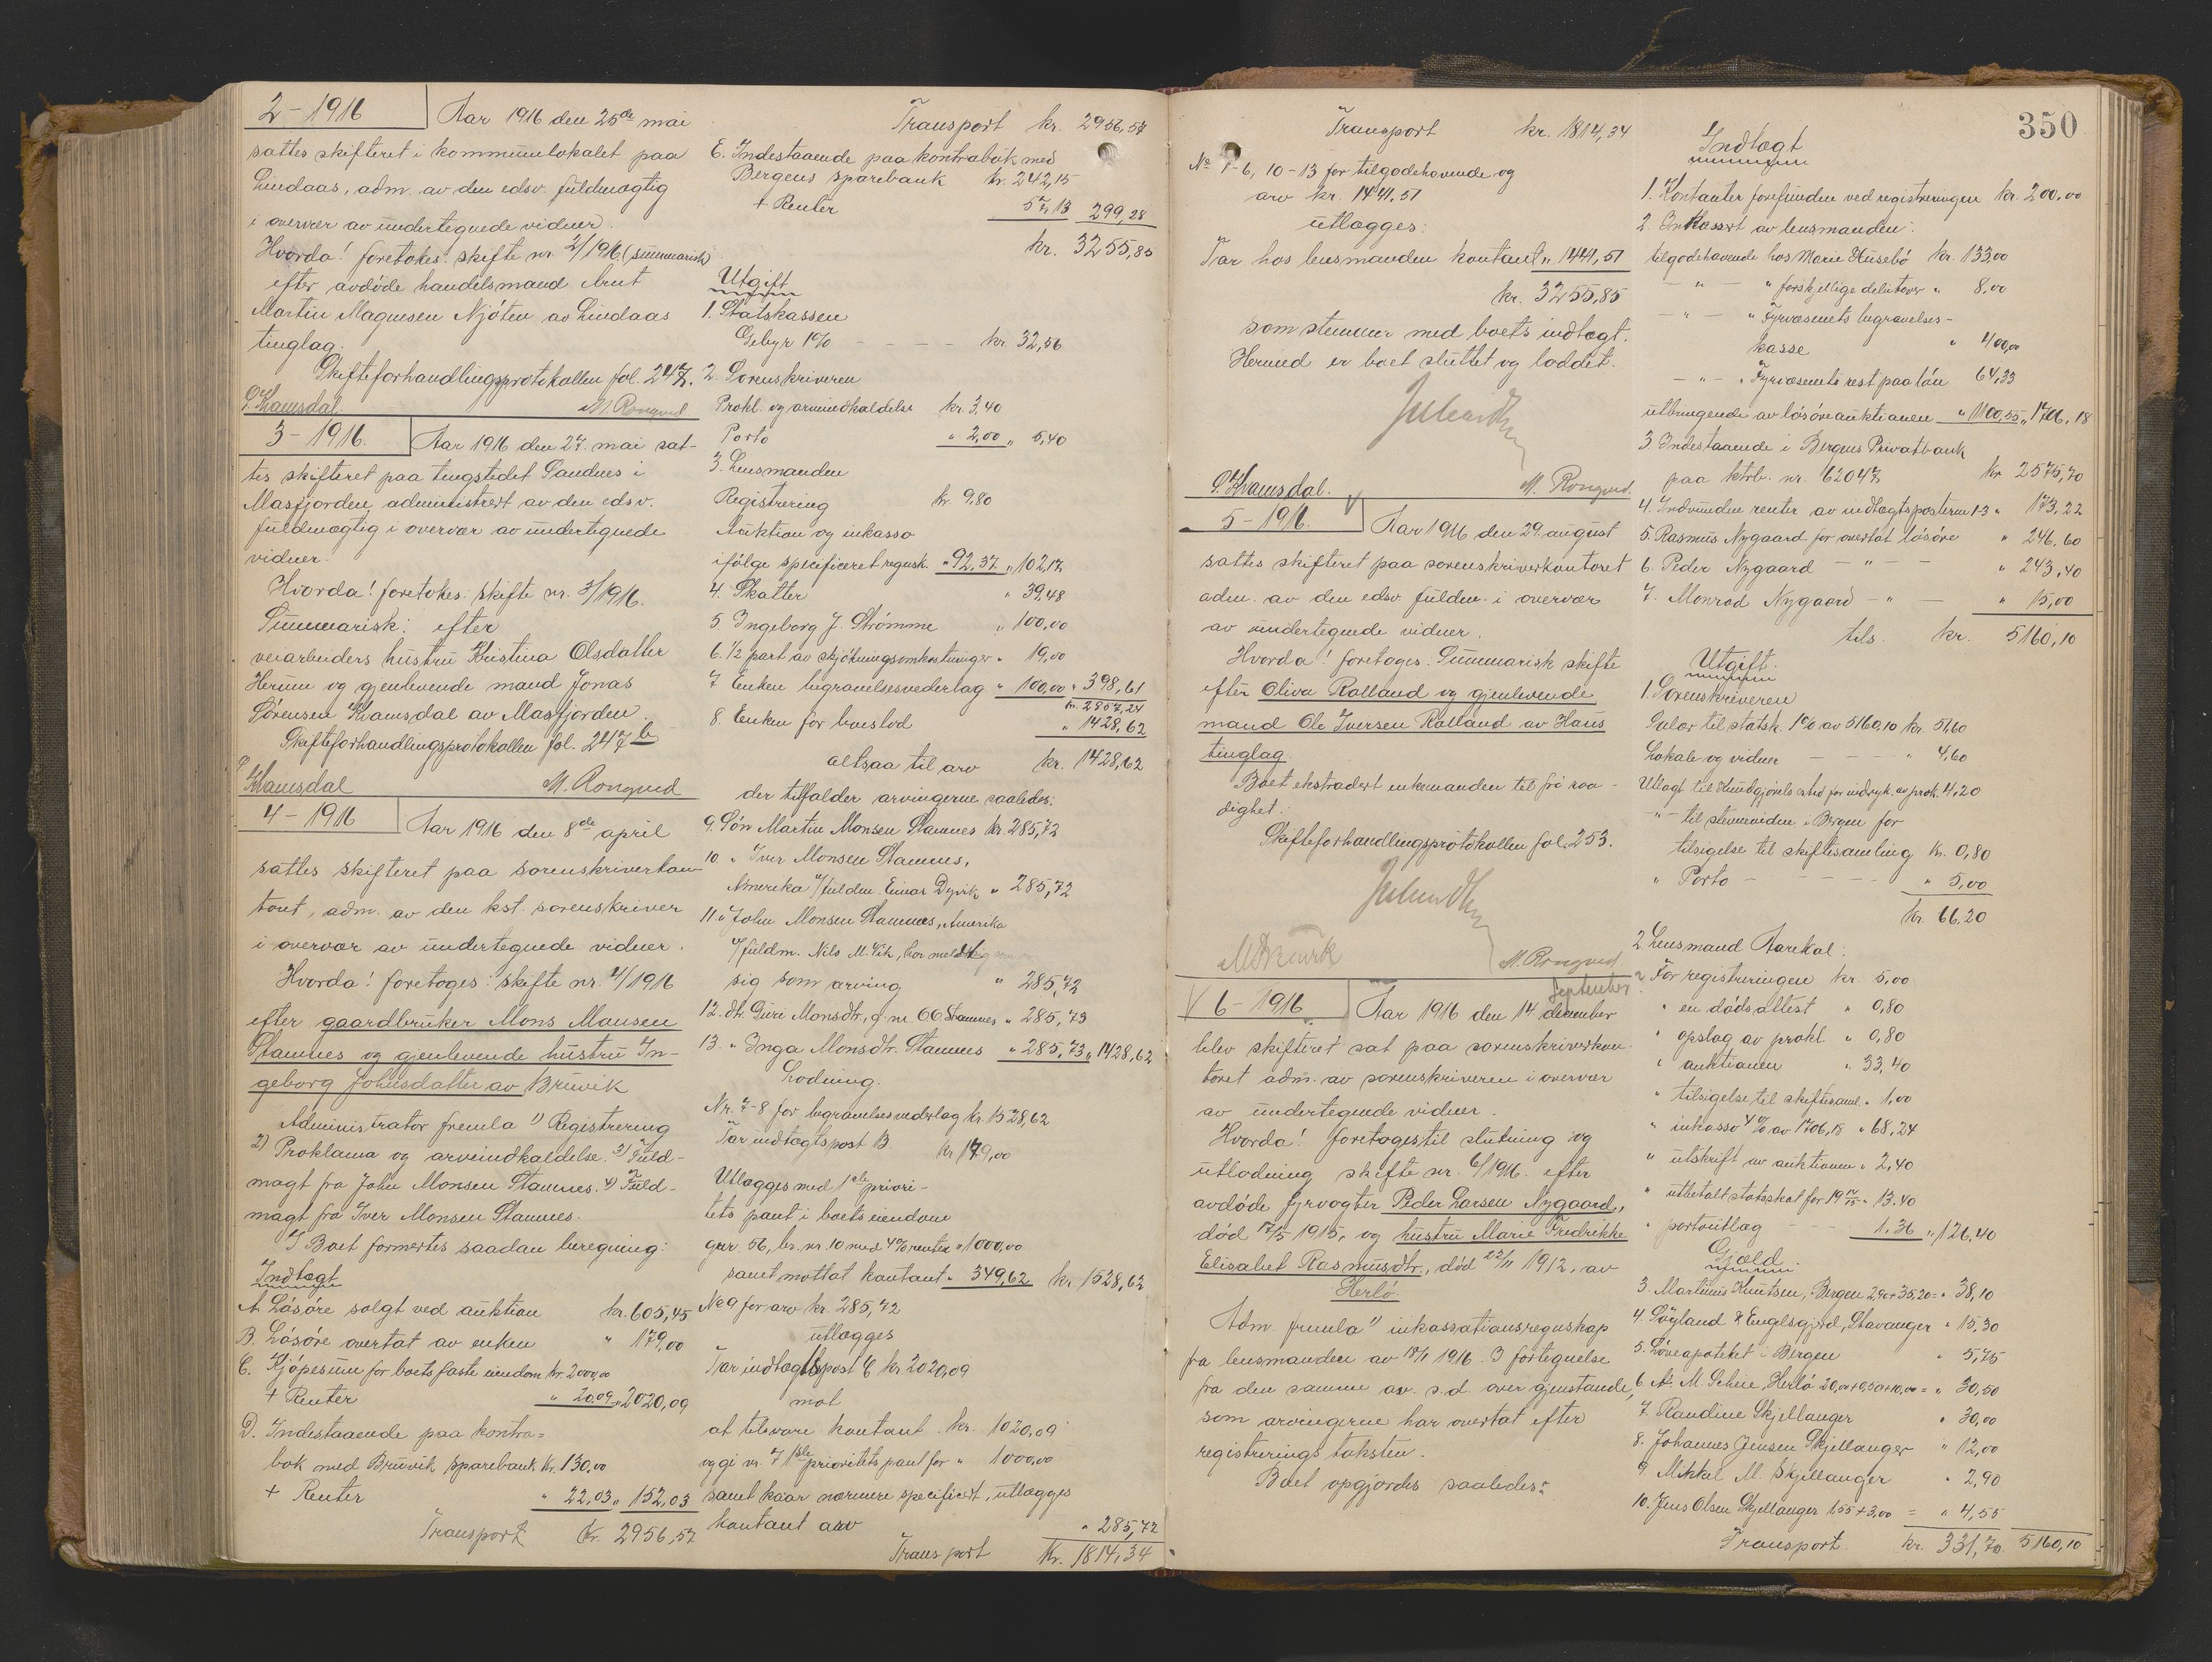 2-1916
Aar 1916 den 25de mai
sattes skifteret i kommunelokalet paa
Lindaas, adm. av den edsv. fuldmægtig
i overvær av undertegnede vidner.
Hvorda! foretokes: skifte nr. 2/1916 (summarisk)
efter avdöde handelsmand Knut
Martin Magnesen Njöten av Lindaas
tinglag.
Skifteforhandlingsprotokollen fol. 247.
Kvamsdal. M. Rongved
3-1916.
Aar 1916 den 27. mai sat-
tes skifteret paa tingstedet Sandnes i
Masfjorden, administrert av den edsv.
fuldmægtig i overvær av undertegnede
vidner.
Hvorda! foretokes: skifte nr. 3/1916.
Summarisk: efter
veiarbeiders hustru Kristina Olsdatter
Herum og gjenlevende mand Jonas
Sörensen Kvamsdal av Masfjorden.
Skifteforhandlingsprotokollen fol. 247 b
Kvamsdal M. Rongved
4-1916
Aar 1916 den 8de april
sattes skifteret paa sorenskriverkon-
toret, adm. av den kst. sorenskriver
i overvær av undertegnede vidner.
Hvorda! foretoges: skifte nr. 4/1916
efter gaardbruker Mons Monsen
Stamnes og gjenlevende hustru In-
geborg Johnsdatter av Bruvik
Administrator fremla 1) Registrering
2) Proklama og arveindkaldelse. 3) Fuld-
magt fra John Monsen Stamnes. 4) Fuld-
magt fra Iver Monsen Stamnes.
I Boet formertes saadan beregning:
Indtægt
A. Lösöre solgt ved auktion kr. 605,45
B. Lösöre overtat av enken " 179,00
C. Kjöpesum for boets faste eiendom kr. 2000,00
+ Renter " 20,09 " 2020,09
D. Indestaaende paa kontra=
bok med Bruvik sparebank kr. 130,00
+ Renter " 22,03 " 152,03
Transport kr. 2956,57
Transport kr. 2956,57
E. Indestaaende paa kontrabok med
Bergens sparebank kr. 242,15
+ Renter 57,13 299,28
kr. 3255,85
Utgift
1. Statskassen
Gebyr 1% - - - - kr. 32,56
2. Sorenskriveren
Prokl. og arveindkaldelse kr. 3,40
Porto " 2,00 " 5,40
3. Lensmanden
Registrering kr. 9,80
Auktion og inkasso
ifölge specificeret regnsk. " 92,37 " 102,17
4. Skatter " 39,48
5 Ingeborg J. Strömme " 100,00
6. 1/2 part av skjötningsomkostninger " 19,00
7 Enken begravelsesvederlag " 100,00 " 398,61
kr. 2857,24
8. Enken for boeslod " 1428,62
altsaa til arv kr. 1428,62
der tilfalder arvingerne saaledes:
9. Sön Martin Monsen Stamnes kr. 285,72
10. " Iver Monsen Stamnes,
Amerika v/fuldm. Einar Dyvik " 285,72
11 " John Monsen Stamnes, Amerika
v/fuldm. Nils M. Vik, har meldt sig
sig som arving " 285,72
12. dtr. Guri Monsdtr, g. m. O G Stamnes " 285,73
13. " Inga Monsdtr. Stamnes " 285,73 " 1428,62
Lodning.
Nr. 7-8 for begravelsesvederlag kr. 1528,62
Tar indtægtspost B. kr 179,00
Utlægges med 1ste priori-
tets pant i boets eiendom
gnr. 56, br. nr. 10 med 4% renter " 1000,00
samt mottat kontant " 349,62 kr. 1528,62
No 9 for arv kr. 285,72
utlægges
Tar indtægtspost C kr 2020,09
mot
at tilsvare kontant kr. 1020,09
og gi nr. 7 1ste prioritets pant for " 1000,00
samt kaar nærmere specificert, utlægges
kontant arv " 285,72
Transport kr. 1814,34
350
Transport kr. 1814,34
No 1-6, 10-13 for tilgodehavende og
arv kr. 1441,51
utlægges:
Tar hos lensmanden kontant " 1441,51
kr. 3255,85
som stemmer med boets indtægt.
Hermed er boet sluttet og loddet.
Kvamsdal. M. Rongved.
5-1916.
Aar 1916 den 29. august
sattes skifteret paa sorenskriverkontoret
adm. av den edsv. fuldm. i overvær
av undertegnede vidner.
Hvorda! foretoges: Summarisk skifte
efter Oliva Rolland og gjenlevende
mand Ole Iversen Rolland av Haus
tinglag.
Boet ekstradert enkemanden til fri raa-
dighet.
Skifteforhandlingsprotokollen fol. 253.
M. Rongved.
6-1916.
Aar 1916 den 14 december
September
blev skifteret sat paa sorenskriverkon-
toret adm. av sorenskriveren i overvær
av undertegnede vidner.
Hvorda! foretoges til slutning og
utlodning skifte nr. 6/1916. efter
avdöde fyrvogter Peder Larsen Nygaard,
död 17/5 1915, og hustru Marie Fredrikke
Elisabet Rasmusdtr., död 22/11 1912, av
Herlö.
Adm. fremla 1) inkassationsregnskap
fra lensmanden av 18/1 1916. 2 fortegnelse
fra den samme av s.d. over gjenstande,
som arvingerne har overtat efter
registrerings taksten.
Boet opgjordes saaledes:
Indtægt
1. Kontanter forefunden ved registreringen kr. 200,00
2. Inkassert av lensmanden:
tilgodehavende hos Marie Husebö kr. 133,00
- " - " forskjellige debitorer " 8,00
- " - " Fyrvæsenets begravelses-
kasse " 400,00
- " - " Fyrvæsenets rest paa lön 64,33
utbringende av lösöreauktionen " 1100,55 " 1706,18
3. Indestaaende i Bergens Privatbank
paa ktrb. nr. 62047 kr 2575,70
4. Indvundne renter av indtægtsposterne 1-3 " 173,22
5. Rasmus Nygaard for overtat lösöre " 246,60
6. Peder Nygaard - " - " 243,40
7. Monrad Nygaard - " - " 15,00
tils. kr. 5160,10
Utgift.
1. Sorenskriveren
Salær til statsk. 1% av 5160,10 kr. 51,60
Lokale og vidner - - - " 4,60
Utlagt til Kundgjörels.cntrd for indryk. av prok. 4,20
- " - til stevnevidne i Bergen for
tilsigelse til skiftesamling kr. 0,80
" Porto - - - - " 5,00
kr. 66,20
2 Lensmand Aarekol:
For registreringen kr. 5,00
" en dödsattest " 0,80
" opslag av prokl. " 0,80
" auktionen " 33,40
" tilsigelse til skiftesaml. " 1,00
" inkasso 4% av 1706,18 " 68,24
" utskrift av auktionen " 2,40
" utbetalt statsskat for 1914/15 " 13.40
" portoutlæg - - - 1.36 " 126.40
Gjæld.
3. Martinus Knutsen, Bergen 2,90+35,20= " 38,10
4. Sögland & Englsgjerd, Stavanger " 15,30
5. Löveapoteket i Bergen " 5,75
6. A. M. Scheie, Herlö 20,00+0,50+10,00 = " 30,50
7. Raudine Skjellanger " 30,00
8. Johannes Jensen Skjellanger " 12,00
9. Mikkel M. Skjellanger " 2,90
10. Jens Olsen Skjellanger 1.55+3,00 = " 4,55
Transport. kr. 331,70 5160,10